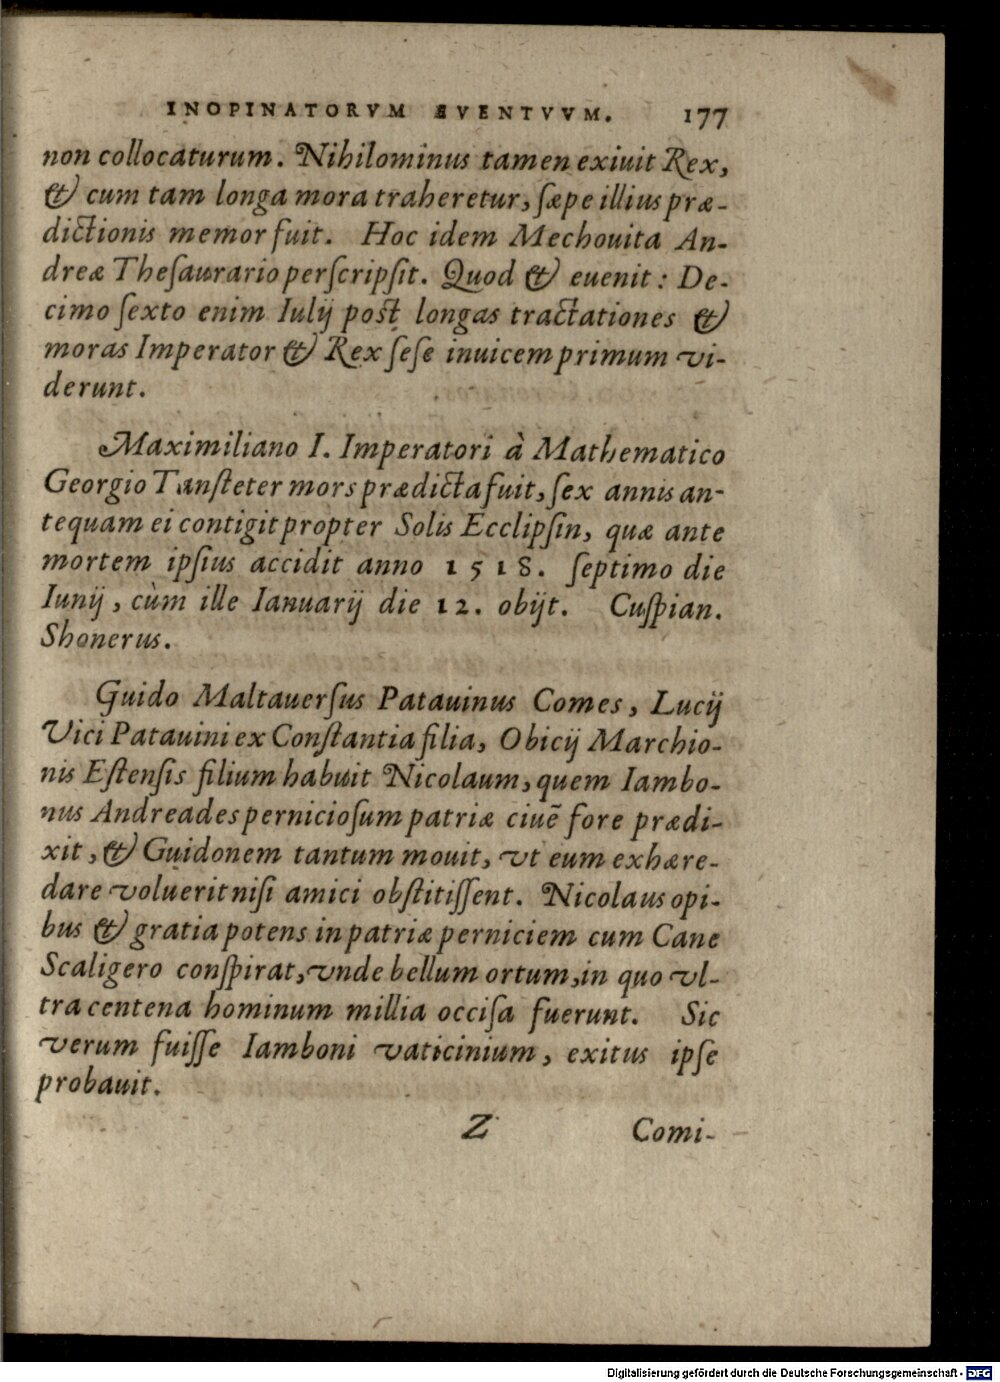 INOPINATORVM EVENTVVM. 177
non collocaturum. Nihilominus tamen exiuit Rex,
& cum tam longa mora traheretur, ſæpe illius præ-
dictionis memor fuit. Hoc idem Mechouita An-
dreæ Theſaurario perſcripſit. Quod & euenit: De-
cimo ſexto enim Iulij poſt longas tractationes &
moras Imperator & Rex ſeſe inuicem primum vi-
derunt.
Maximiliano I. Imperatori à Mathematico
Georgio Tanſteter mors prædicta fuit, ſex annis an-
tequam ei contigit propter Solis Ecclipſin, quæ ante
mortem ipſius accidit anno 1518. ſeptimo die
Iunij, cùm ille Ianuarij die 12. obijt. Cuſpian.
Shonerus.
Guido Maltauerſus Patauinus Comes, Lucij
Vici Patauini ex Conſtantia filia, Obicij Marchio-
nis Eſtenſis filium habuit Nicolaum, quem Iambo-
nus Andreades pernicioſum patriæ ciuē fore prædi-
xit, & Guidonem tantum mouit, vt eum exhære-
dare voluerit niſi amici obſtitiſſent. Nicolaus opi-
bus & gratia potens in patriæ perniciem cum Cane
Scaligero conſpirat, vnde bellum ortum, in quo vl-
tra centena hominum millia occiſa fuerunt. Sic
verum fuiſſe Iamboni vaticinium, exitus ipſe
probauit.
Z Comi-
Digitalisierung gefördert durch die Deutsche Forschungsgemeinschaft - DFG